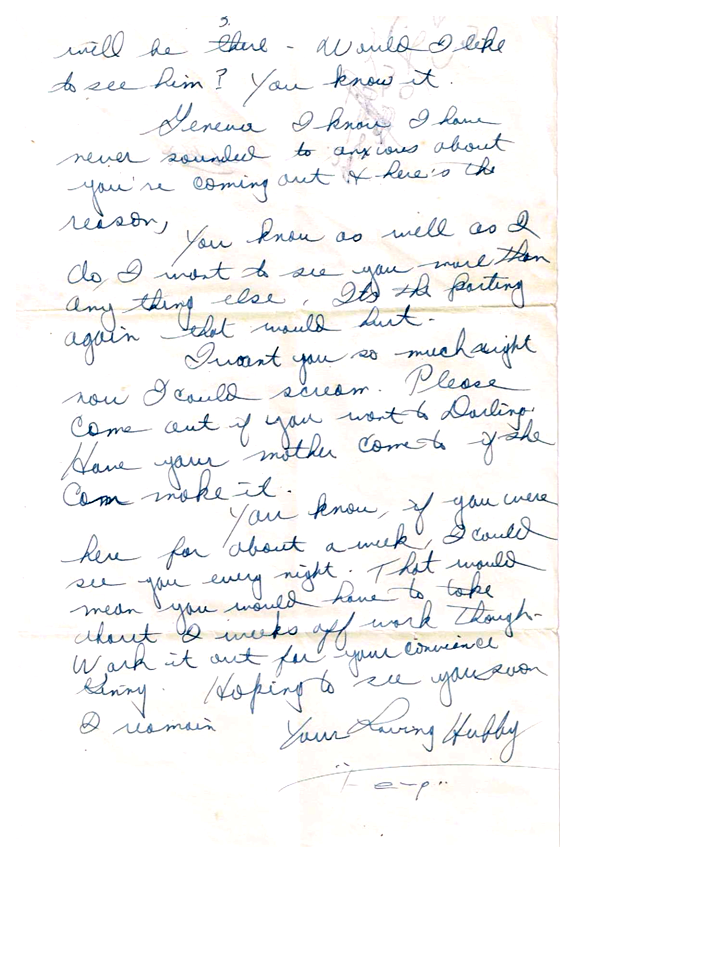 3.
will be there - Would I like
to see him? You know it.
Geneva I know I have
never sounded to anxious about
you're coming out & here's the
reason,
You know as well as I
do, I want to see you more than
any thing else. Its the parting
again that would hurt.
I want you so much right
now I could scream. Please
come out if you want to Darling.
Have your mother come to if she
can make it.
You know, if you were
here for about a week, I could
see you every night. That would
mean you would have to take
about 2 weeks off work though-
Work it out for your convience
Hoping to see you soon
I remain Your Loving Hubby